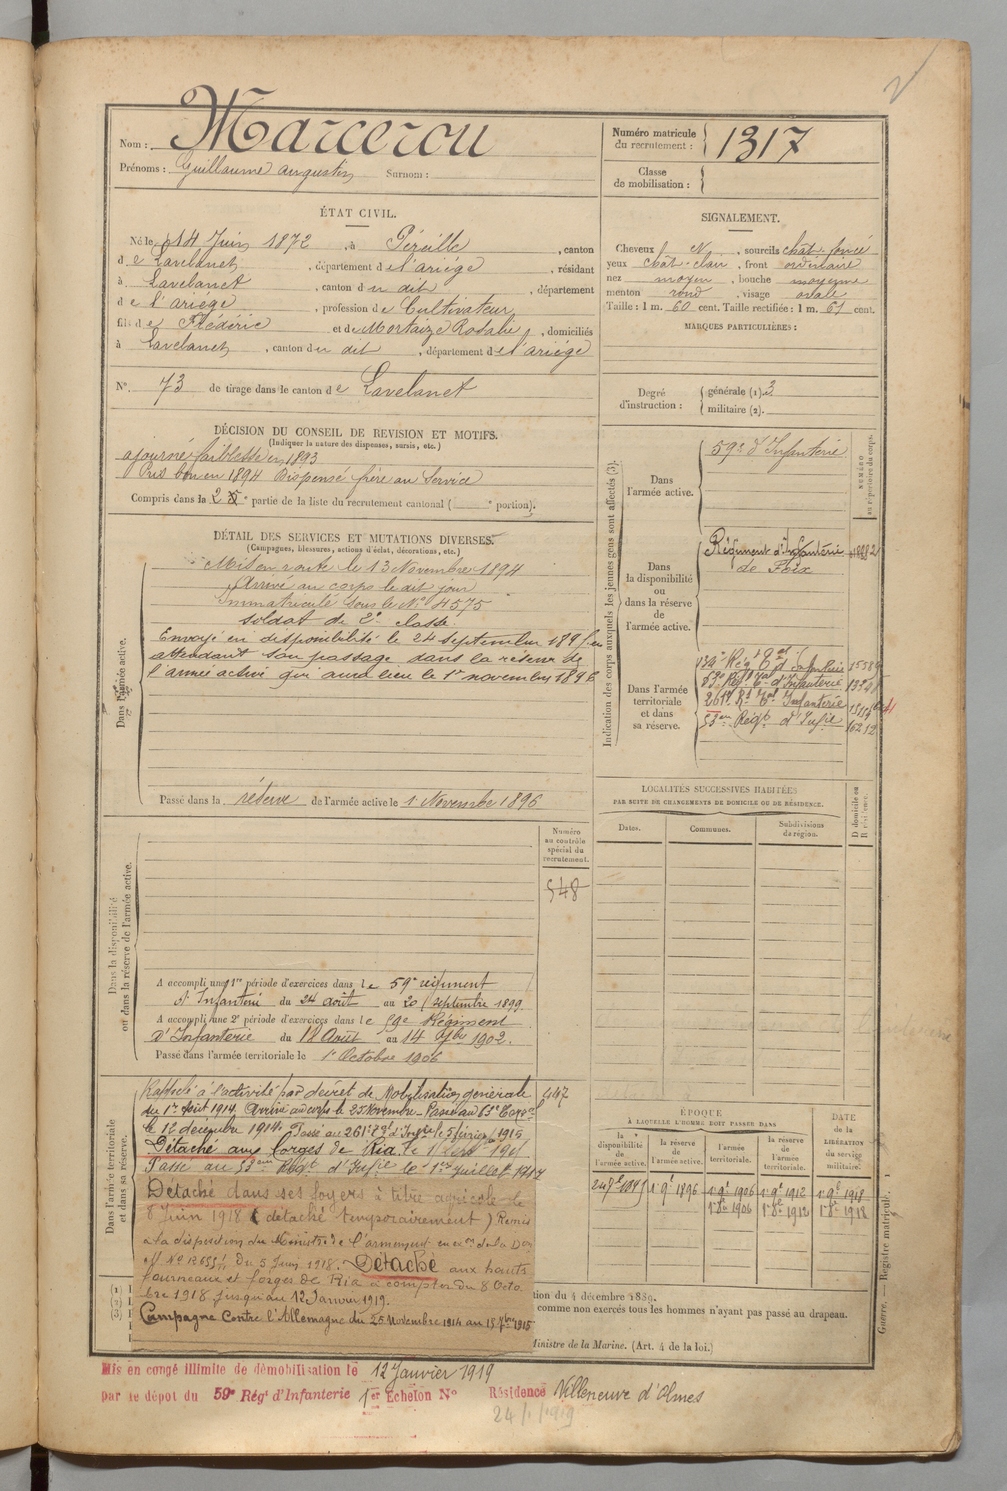 Nom : Marcerou
Prénoms : Guillaume Augustin Surnom :
Numéro matricule du recrutement : 1317
Classe de mobilisation :
ÉTAT CIVIL.
Né le 14 Juin 1872, à Péreille, canton
de Lavelanet, département de l'ariége, résidant
à Lavelanet, canton du dit, département
de l'ariege, profession de Cultivateur,
fils de Frédéric et de Mortaize Rosalie, domiciliés
à Lavelanet, canton du dit, département de l'ariége
N° 73 de tirage dans le canton de Lavelanet
SIGNALEMENT.
Cheveux N, sourcils chât. foncé
yeux chât. clair, front ordinaire
nez moyen, bouche moyenne
menton rond, visage ovale
Taille : 1 m. 60 cent. Taille rectifiée : 1 m. 61 cent.
MARQUES PARTICULIÈRES :
Degré d'instruction : générale (1). 3
militaire (2).
DÉCISION DU CONSEIL DE REVISION ET MOTIFS.
(Indiquer la nature des dispenses, sursis, etc.)
ajourné faiblesse en 1893
Pris bon en 1894 Dispensé frère au Service
Compris dans la 2 e partie de la liste du recrutement cantonal ( e portion).
DÉTAIL DES SERVICES ET MUTATIONS DIVERSES.
(Campagnes, blessures, actions d'éclat, décorations, etc.)
Dans l'armée active.
Mis en route le 13 Novembre 1894
Arrivé au corps le dit jour
Immatriculé sous le N° 4575
soldat de 2e classe.
Envoyé en disponibilité le 24 septembre 1895 en
attendant son passage dans la réserve de
l'armée active qui aura lieu le 1er novembre 1896
Passé dans la réserve de l'armée active le 1 Novembre 1896
Indication des corps auxquels les jeunes gens sont affectés (3).
NUMÉRO au répertoire du corps.
Dans l'armée active.
59e d'Infanterie
Dans la disponibilité ou dans la réserve de l'armée active.
Régiment d'Infanterie
de Foix
Dans l'armée territoriale et dans sa réserve.
134e Régt Tal d'Infanterie
53e Régt Tal d'Infanterie
261e Rt Tal Infanterie
53em Régt d'Infie
LOCALITÉS SUCCESSIVES HABITÉES
PAR SUITE DE CHANGEMENTS DE DOMICILE OU DE RÉSIDENCE.
Dates. Communes. Subdivisions de région. D domicile ou R résidence.
Dans la disponibilité ou dans la réserve de l'armée active.
Numéro au contrôle spécial du recrutement.
548
A accompli une 1re période d'exercices dans le 59e régiment
d'Infanterie du 24 août au 20 septembre 1899
A accompli une 2e période d'exercices dans le 59e Régiment
D'Infanterie du 18 Août au 14 7bre 1902.
Passé dans l'armée territoriale le 1 Octobre 1906
Dans l'armée territoriale et dans sa réserve.
447
Rappelé à l'activité par décret de Mobilisation générale
du 1er Août 1914. Arrivé au corps le 25 Novembre. Passé au 53e
le 12 décembre 1914. Passé au 261e Rgt d'Infrie le 5 février 1915
Détaché aux Forges de Ria le
Passé au 53em Régt d'Infie le 1er Juillet 1917
Détaché dans ses foyers à titre agricole le
8 Juin 1918 (détaché temporairement) Remis
à la disposition du Ministre de l'armement en
du 5 Juin 1918. Détaché aux hauts
fourneaux et forges de Ria à compter du 8 Octo
bre 1918 jusqu'au 12 Janvier 1919.
Campagne contre l'Allemagne du 25 Novembre 1914 au 18 7bre 1915
ÉPOQUE
À LAQUELLE L'HOMME DOIT PASSER DANS
la disponibilité de l'armée active. la réserve de l'armée active. l'armée territoriale. la réserve de l'armée territoriale. DATE de la LIBÉRATION du service militaire.
24 7e 1895 1 9e 1896 1 9e 1906 1 9e 1912 1 9e 1918
1 8e 1906 1 8e 1912 1 8e 1918
(1)
(2)
(3)
tion du 4 décembre 1889.
comme non exercés tous les hommes n'ayant pas passé au drapeau.
Ministre de la Marine. (Art. 4 de la loi.)
Guerre. — Registre matricule. 1
Mis en congé illimité de démobilisation le 12 Janvier 1919
par le dépot du 59e Régt d'Infanterie 1er Échelon N° Résidence Villeneuve d'Olmes
24/1/1919